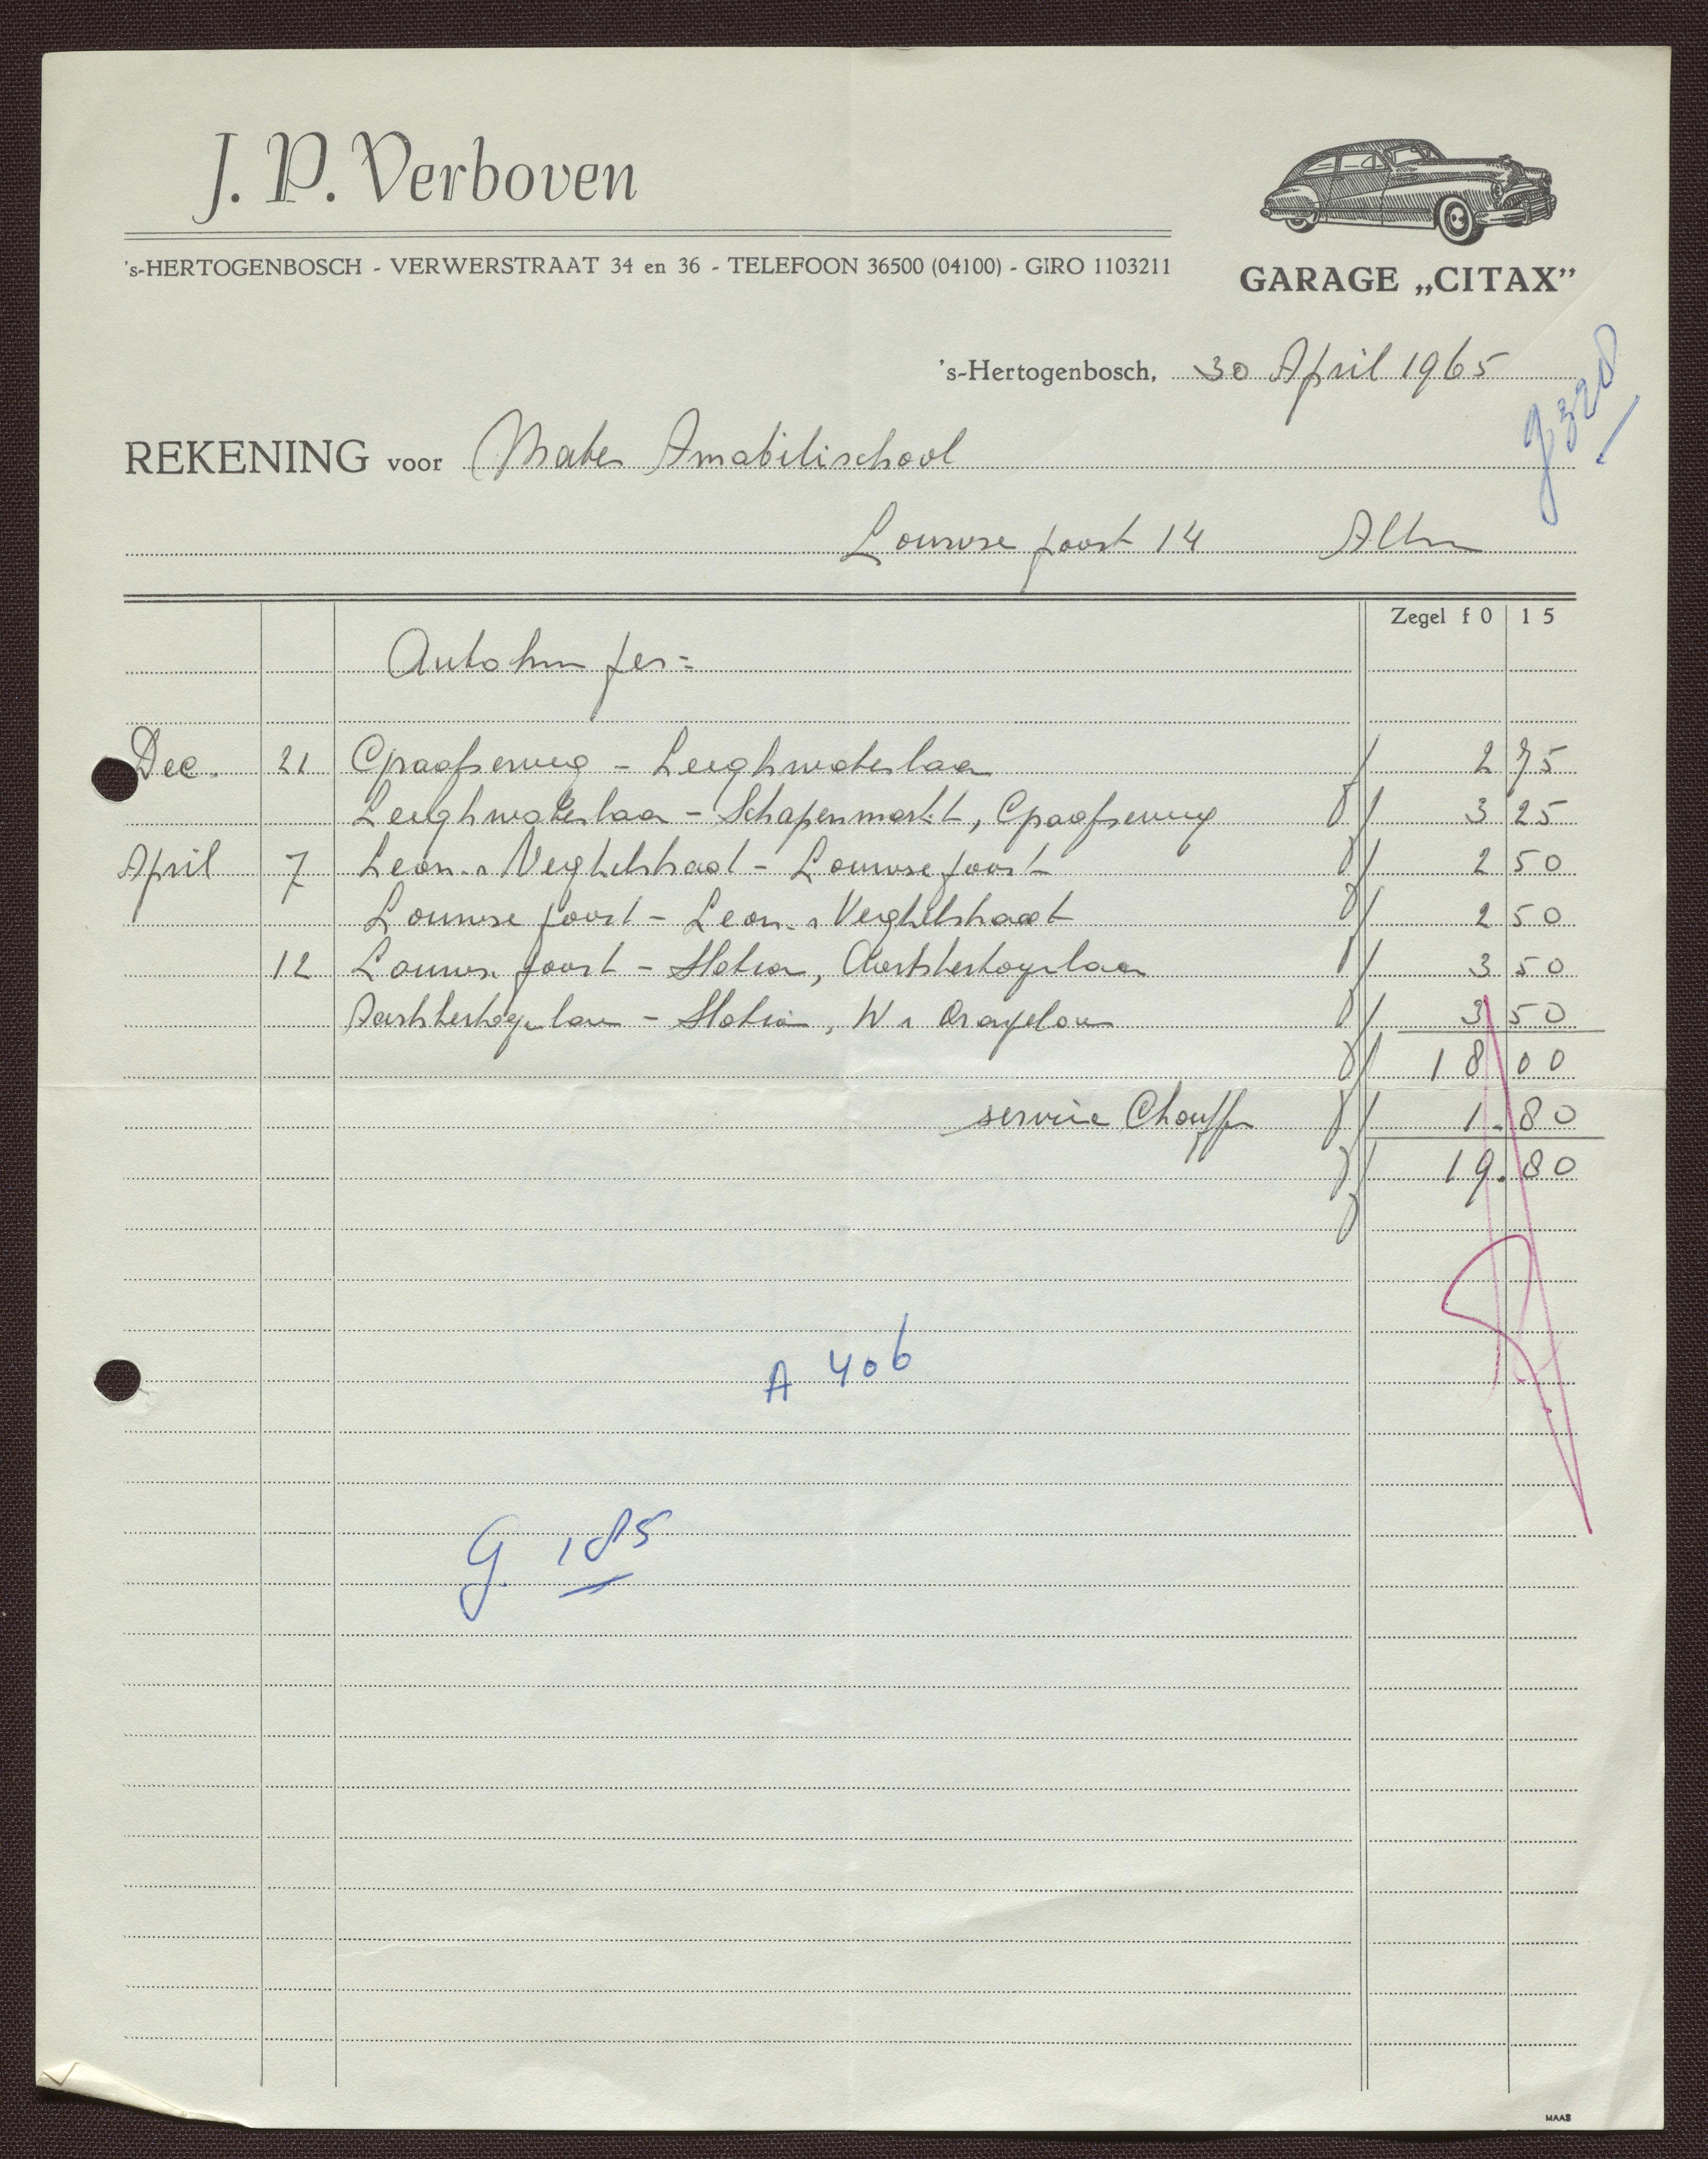 J. P. Verboven
's-HERTOGENBOSCH - VERWERSTRAAT 34 en 36 - TELEFOON 36500 (04100) - GIRO 1103211
GARAGE „CITAX”
's-Hertogenbosch, 30 April 1965
g 328
REKENING voor Mater Amabilischool
Louwse poort 14 Alhr
Zegel f 0 15
Autohuur per =
Dec. 21 Graafseweg - Leeghwaterlaan f 2 75
Leeghwaterlaan - Schapenmarkt, Graafseweg f 3 25
April 7 Leon. v Veghelstraat - Louwse poort f 2 50
Louwse poort - Leon. v Veghelstraat f 2 50
12 Louwse poort - Station, Aartshertogenlaan f 3 50
Aartshertogenlaan - Station, W v Oranjelaan f 3 50
f 18 00
service Chauff f 1.80
19.80
A 406
G. 185
MAAS